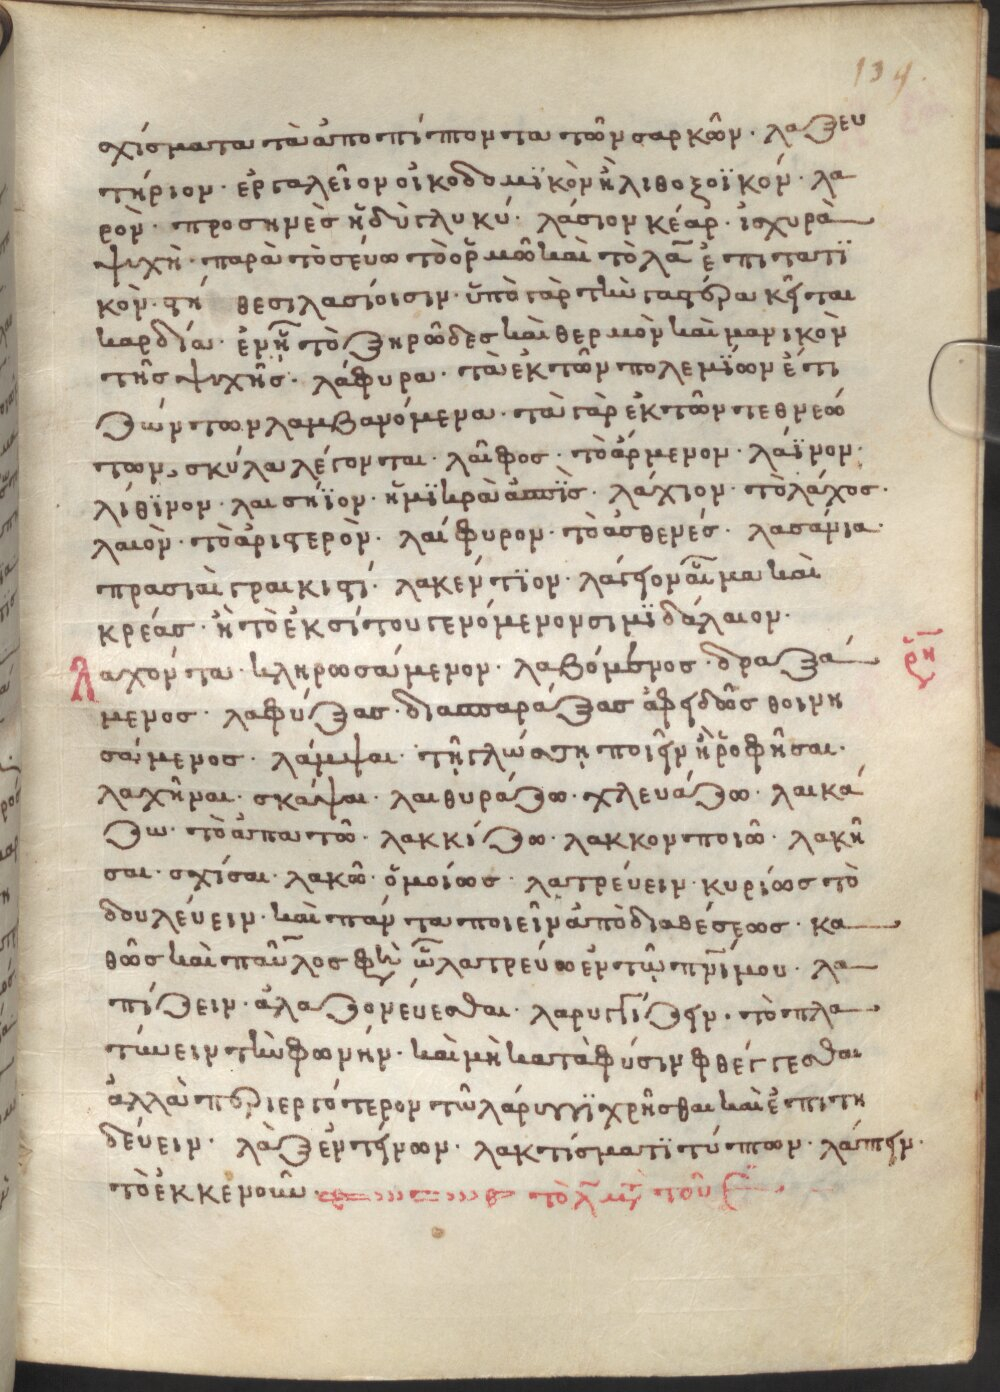 134.
σχίσματα τὰ ἀποπίπτοντα τῶν σαρκῶν· λαξευ
τήριον· ἐργαλεῖον οἰκοδομϊκὸν ἢ λιθοξοϊκόν· λα
ρὸν· προσηνὲς ἡδὺ γλυκύ· λάσιον κέαρ· ἰσχυρὰ
ψιχὴ· παρὰ τὸ σεύω τὸ ὁρμῶ καὶ τὸ λα ἐπιτατϊ
κὸν· στήθεσι λασίοισιν· ὑπὸ γὰρ τὴν γαστέρα κεῖται
καρδία· ἐν ᾗ τὸ ζηρῶδες καὶ θερμὸν καὶ μανικὸν
τῆς ψιχῆς· λάφυρα· τὰ ἐκ τῶν πολεμίων ἔτι
ζώντων λαμβανόμενα· τὰ γὰρ ἐκ τῶν τεθνεώ
των, σκύλα λέγονται· λαῖφος· τὸ ἄρμενον· λάϊνον·
λίθϊνον· λαισήϊον· ἡ μϊκρὰ ἀσπὶς· λάχιον· τὸ λάχος·
λαιὸν· τὸ ἀριστερὸν· λαίφυρον· τὸ ἀσθενές· λασάνια·
πρασιαὶ γραικιστί· λακέντϊον· λάγειον αἷμα καὶ
κρέας· ἢ τὸ ἐκ σίτου γενόμενον σιμϊδάλαιον·
Λαχόντα· κληρωσάμενον· λαβόμενος· δραξά
ρῆ
μενος· λαφύξας· διασπαράξας ἀφειδῶς θοινη
σάμενος· λάμψαι· τῇ γλώσσῃ ποιεῖν ἢ ῥοφῆσαι·
λαχῆναι· σκάψαι· λαιθυράζω· χλευάζω· λαικά
ζω· τὸ ἀπατῶ· λακκίζω· λάκκον ποιῶ· λακῆ
σαι· σχίσαι· λακῶ· ὁμοίως· λατρεύειν· κυρίως τὸ
δουλεύειν· καὶ πάντα ποιεῖν ἀπὸ διαθέσεως· κα
θὼς καὶ παῦλος φησὶν ὧ λατρεύω ἐν τῷ πνι μου· λα
πίζειν· ἀλαζονεύεσθαι· λαρυγγίζειν· τὸ πλα
τύνειν τὴν φωνήν· καὶ μὴ κατὰ φύσιν φθέγγεσθαι
ἀλλὰ περιεργότερον τῶ λάρυγγϊ χρῆσθαι καὶ ἐπιτη
δεύειν· λὰξ ἐντείνων· λακτίσματϊ τύπτων· λάπειν·
τὸ ἐκκενοῦν· τὸ λ μετὰ τοῦ ε